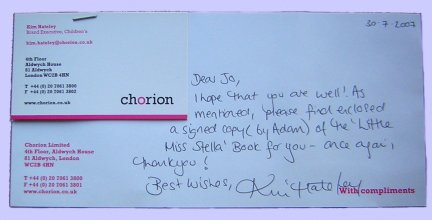 Kim Hateley
Brand Executive, Children's
kim.hateley@chorion.co.uk
4th Floor
Aldwych House
81 Aldwych
London WC2B 4HN
T +44 (0) 20 7061 3800
F +44 (0) 20 7061 3802
www.chorion.co.uk
chorion
30·7·2007
Dear Jo,
I hope that you are well! As
mentioned, please find enclosed
a signed copy (by Adam) of the 'Little
Miss Stella' Book for you - once again,
thankyou!
Best Wishes, Kim Hateley
Chorion Limited
4th Floor, Aldwych House
81 Aldwych, London
WC2B 4HN
T +44 (0) 20 7061 3800
F +44 (0) 20 7061 3801
www.chorion.co.uk
With compliments